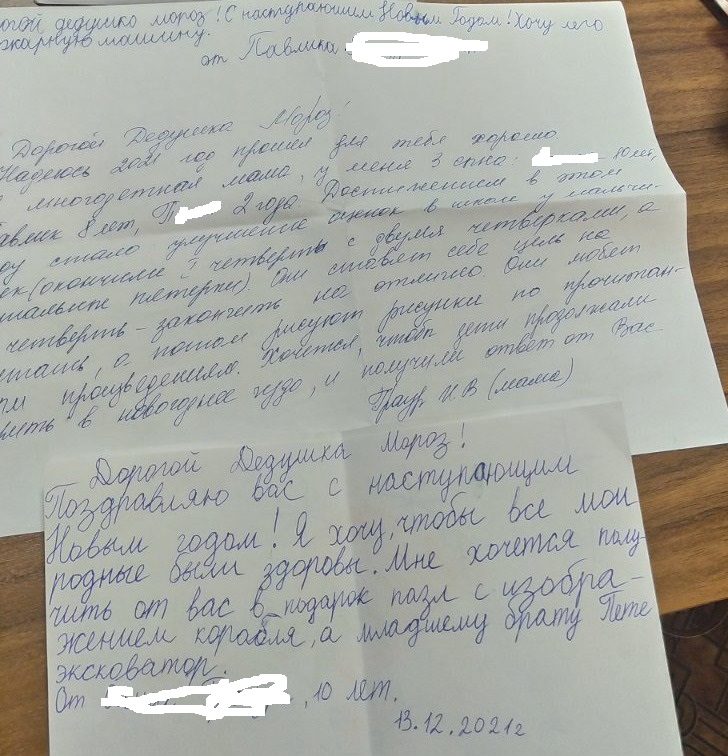 рогой дедушко мороз! С наступающим Новым Годом! Хочу лего
жарную машину.
от Павлика
Дорогой Дедушка Мороз!
Надеюсь 2021 год прошел для тебя хорошо
многодетная мама, у меня 3 сына: 10 лет,
авлик 8 лет, П 2 года. Достижением в этом
оду стало улучшение оценок в школе у мальчи-
ек (окончили I четверть с двумя четверками, а
тальные пятерки). Они ставят себе цель на
четверть - закончить на отлично. Они любят
итать, а потом рисуют рисунки по прочитан-
ым произведениям. Хочется, чтобы дети продолжали
рить в новогоднее чудо, и получили ответ от Вас
И В (мама)
Дорогой Дедушка Мороз!
Поздравляю вас с наступающим
Новым годом! Я хочу, чтобы все мои
родные были здоровы. Мне хочется полу-
чить от вас в подарок пазл с изобра-
жением корабля, а младшему брату Пете
эксковатор.
От , 10 лет.
13.12.2021г